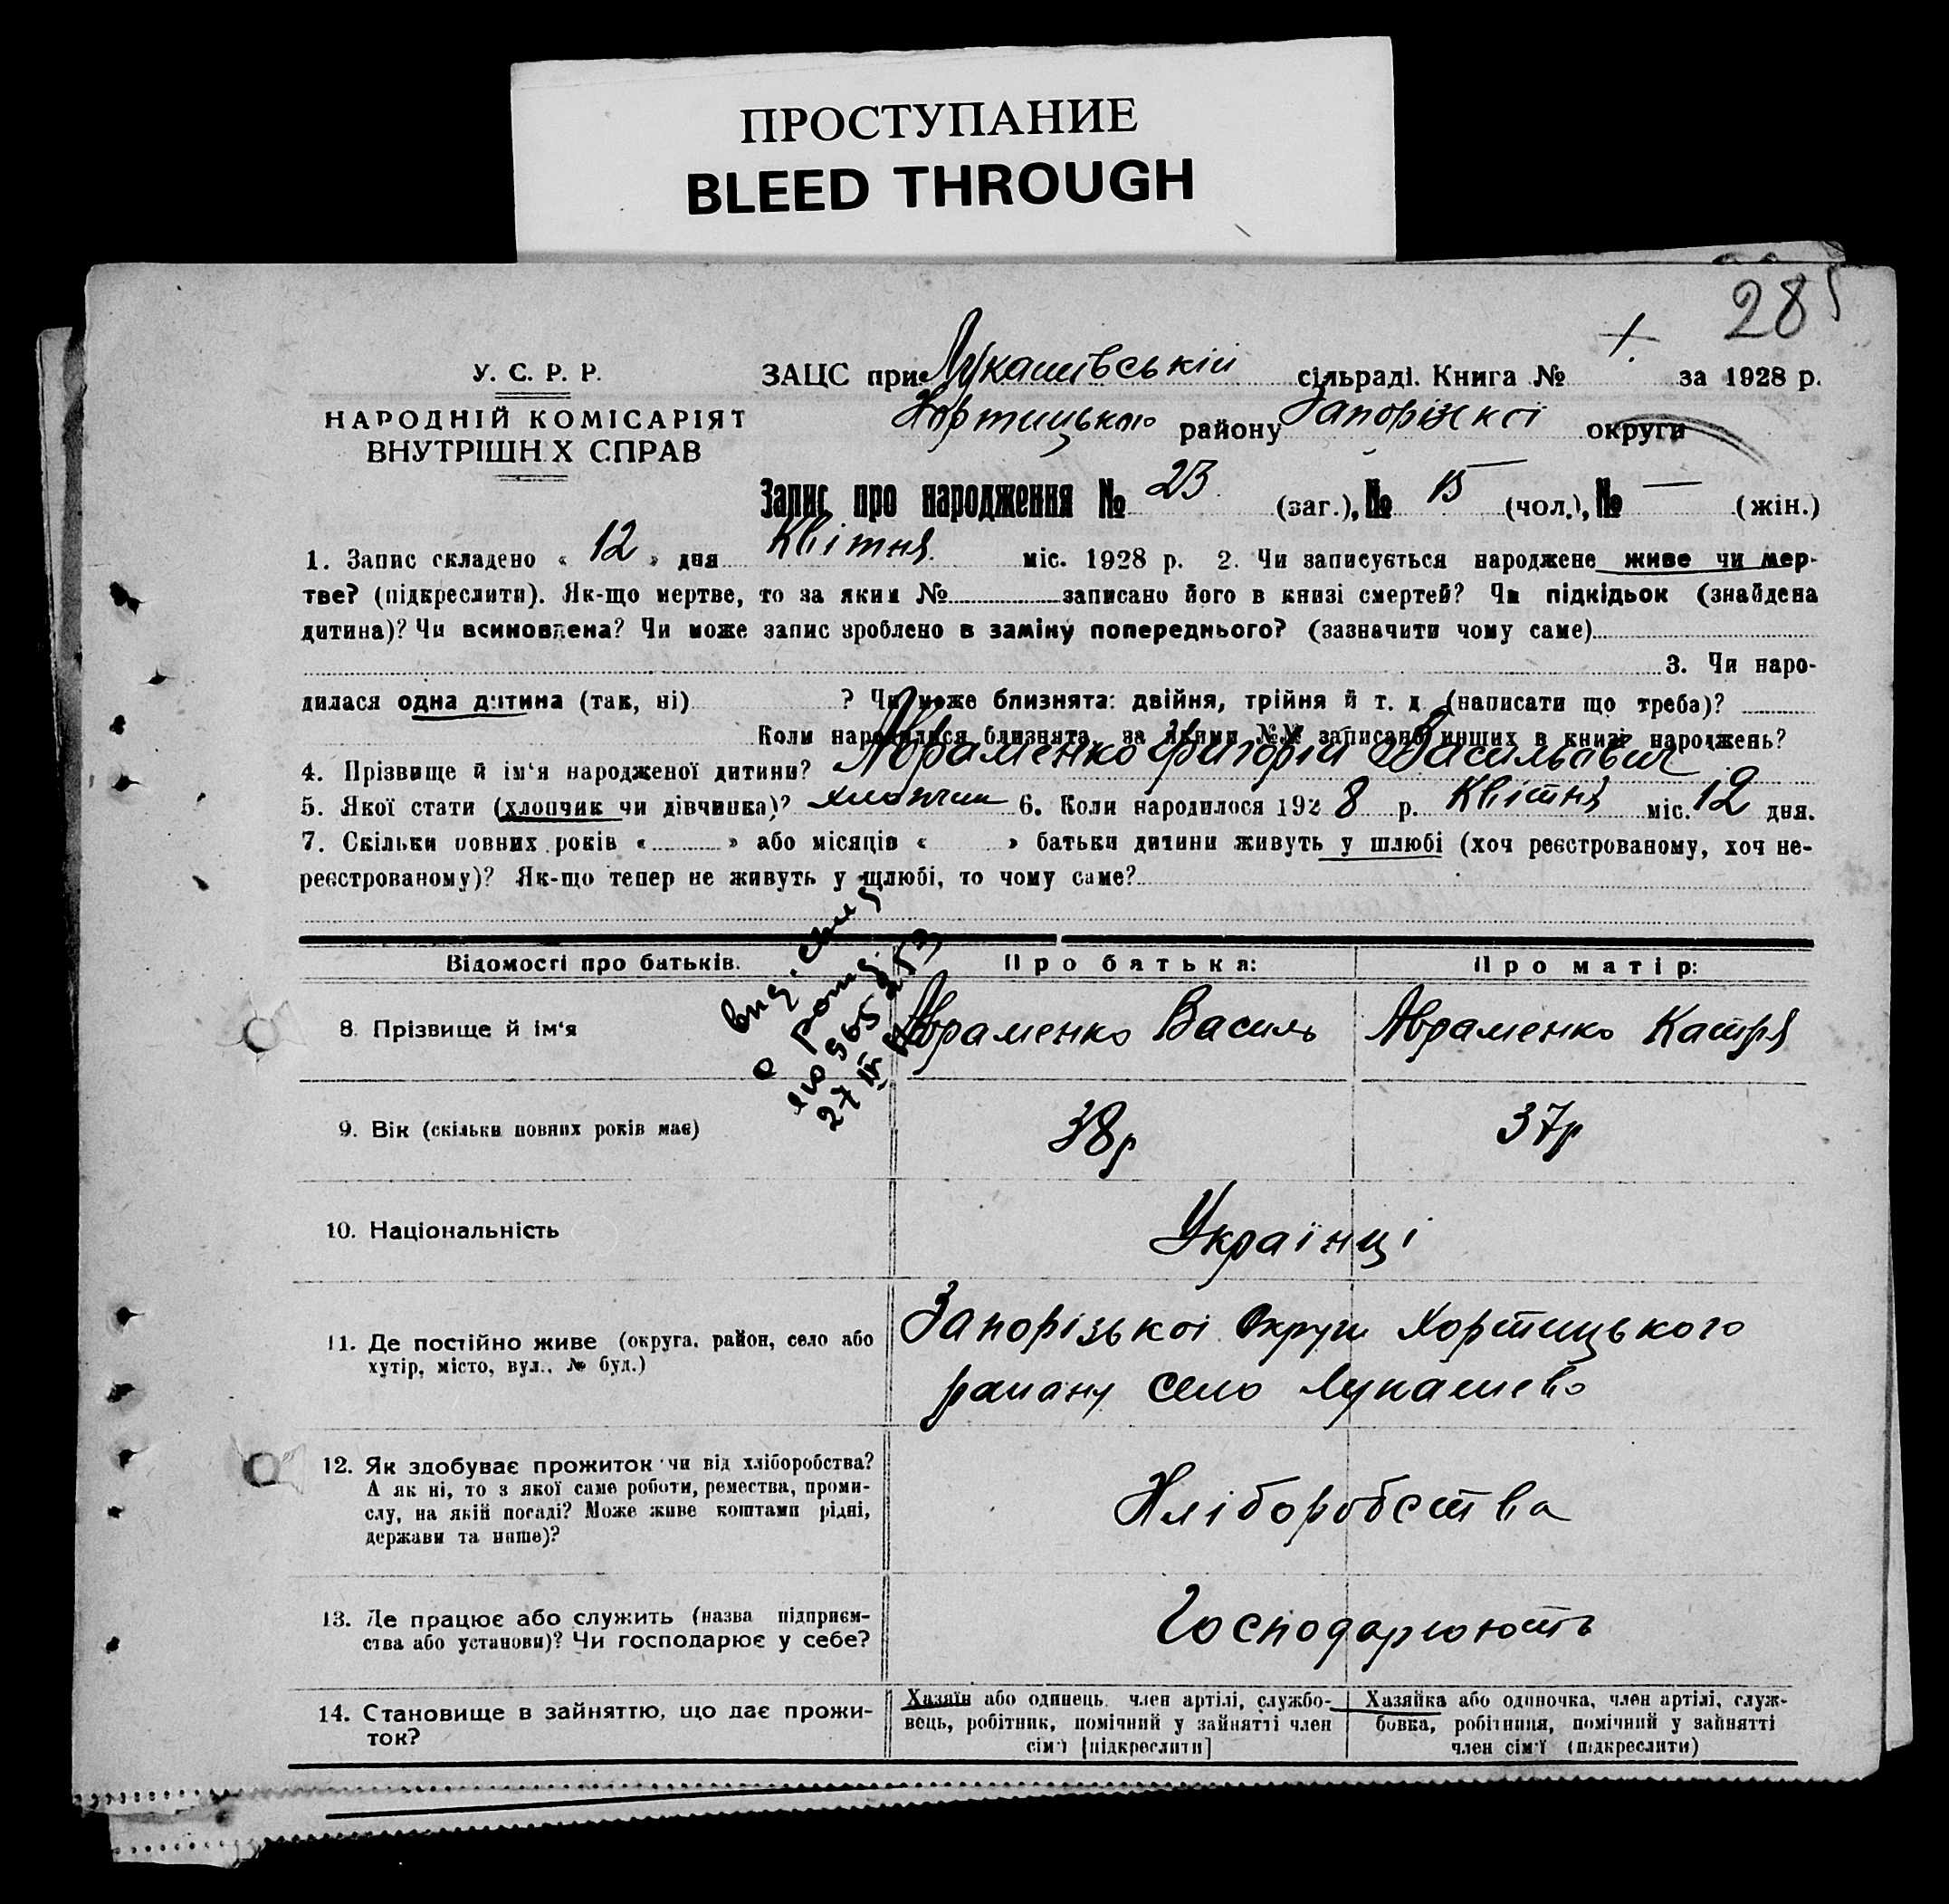 ПРОСТУПАНИЕ
BLEED THROUGH
28
У. С. Р. Р.
НАРОДНІЙ КОМІСАРІЯТ
ВНУТРІШН Х СПРАВ
ЗАЦС при Лукашівській сільраді. Книга № 1. за 1928 р.
Хортицького району Запоріжкої округи
Запис про народження № 23 (заг.), № 15 (чол.), № — (жін.)
1. Запис складено « 12 » дня Квітня міс. 1928 р. 2. Чи записується народжене живе чи мер-
тве? (підкреслити). Як-що мертве, то за яким № записано його в книзі смертей? Чи підкідьок (знайдена
дитина)? Чи всиновлена? Чи може запис зроблено в заміну попереднього? (зазначити чому саме)
3. Чи наро-
дилася одна дитина (так, ні) ? Чи може близнята: двійня, трійня й т. д. (написати що треба)?
Коли народилися близнята, за якими №№ записано инших в книзі народжень?
4. Прізвище й ім'я народженої дитини? Авраменко Григорій Васильович
5. Якої стати (хлопчик чи дівчинка)? хлопчик 6. Коли народилося 1928 р. Квітня міс. 12 дня.
7. Скільки повних років « » або місяців « » батьки дитини живуть у шлюбі (хоч реєстрованому, хоч не-
реєстрованому)? Як-що тепер не живуть у щлюбі, то чому саме?
Відомості про батьків.
Про батька:
Про матір:
8. Прізвище й ім'я
Авраменко Василь
Авраменко Катря
9. Вік (скільки повних років має)
38р
37р
10. Національність
Українці
11. Де постійно живе (округа, район, село або
хутір, місто, вул., № буд.)
Запорізької Округи Хортицького
району село Лукашево
12. Як здобуває прожиток чи від хліборобства?
А як ні, то з якої саме роботи, ремества, проми-
слу, на якій посаді? Може живе коштами рідні,
держави та инше)?
Хліборобства
13. Де працює або служить (назва підприєм-
ства або установи)? Чи господарює у себе?
Господарюють
14. Становище в зайняттю, що дає прожи-
ток?
Хазяїн або одинець, член артілі, службо-
вець, робітник, помічний у зайнятті член
сім'ї [підкреслити]
Хазяйка або одиночка, член артілі, служ-
бовка, робітниця, помічний у зайнятті
член сім'ї (підкреслити)